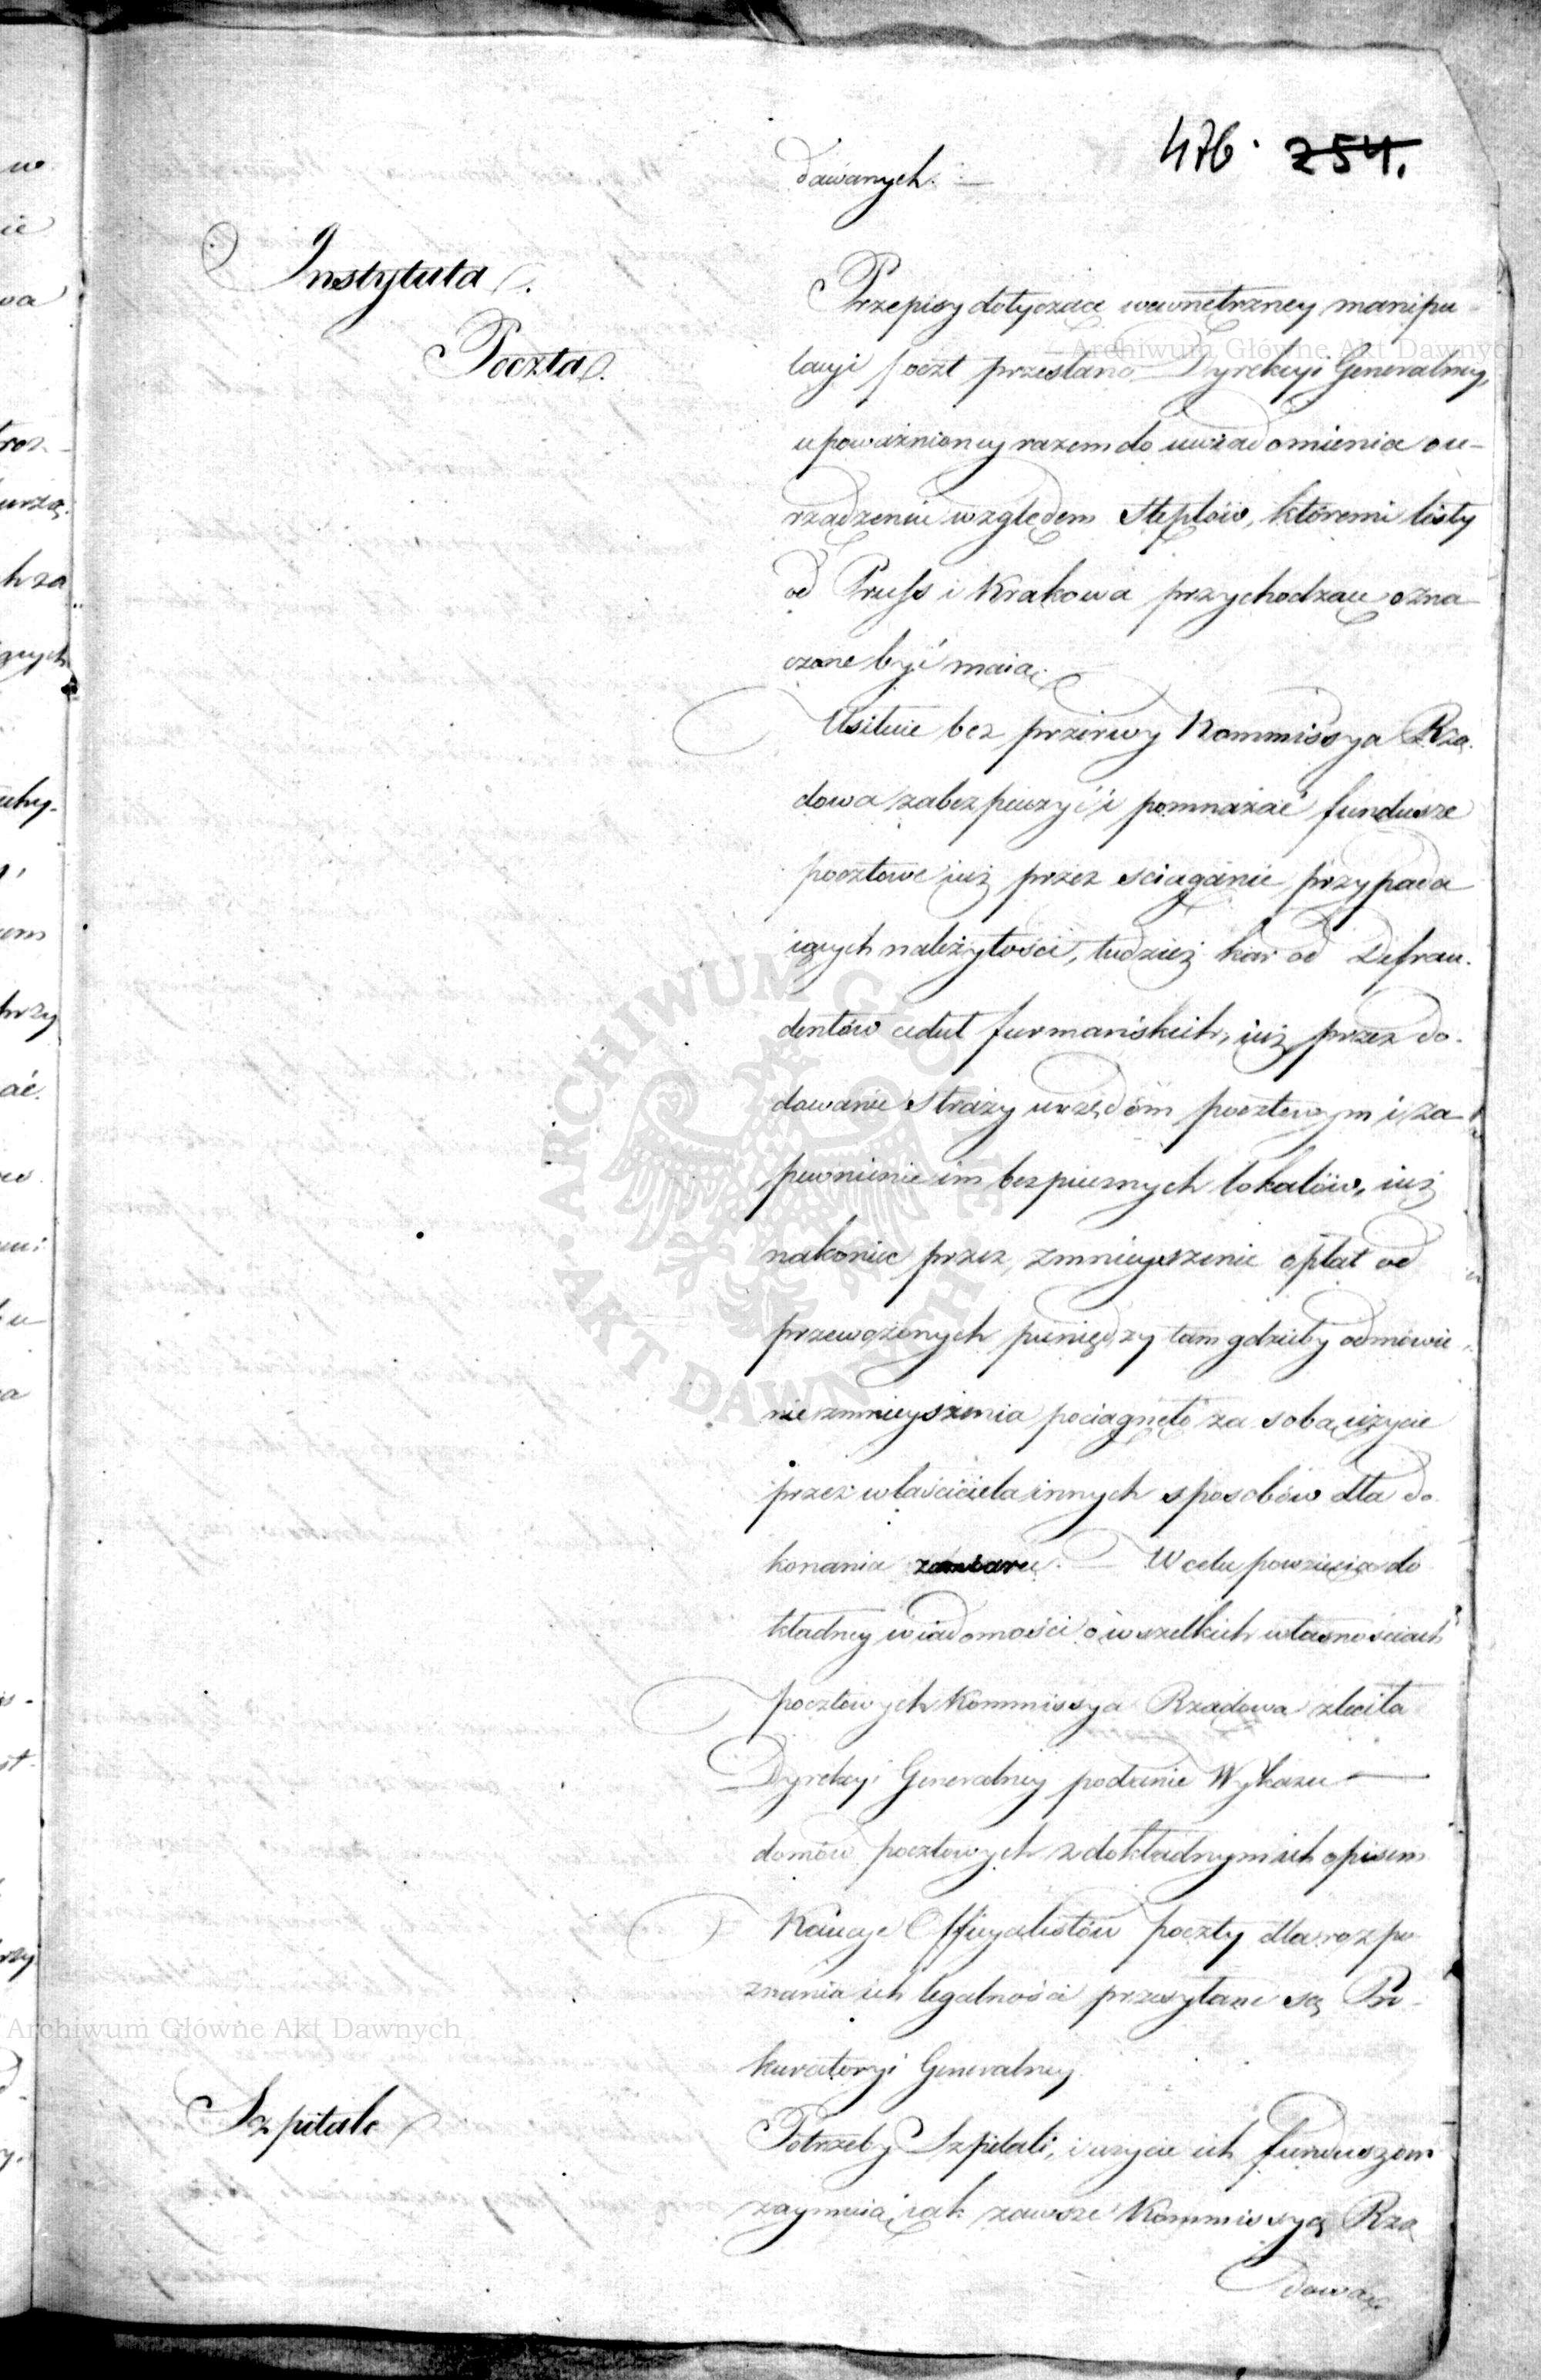 476. 254.
dawanych. —
Instytuta.
Poczta.
Przepisy dotyczące wewnętrzney manipu-
lacyi poczt przesłano Dyrekcyi Generalney,
upoważnioney razem do uwiadomienia o u-
rządzeniu względem Steplów, któremi listy
od Pruss i Krakowa przychodzące ozna-
czone być maią.
Usiłuie bez przerwy Kommissya Rzą-
dowa zabezpieczyć i pomnażać fundusze
pocztowe iuż przez sciąganie przypada
iących należytości, tudzież kar od Defrau-
dentów cedut furmańskich, iuż przez do-
dawanie straży urzędóm pocztowym i za-
pewnienie im bezpiecznych lokalów, iuż
nakoniec przez zmnieyszenie opłat od
przewożonych pieniędzy tam gdzieby odmówie-
nie zmnieyszenia pociągnęło za sobą użycie
przez właściciela innych sposobów dla do-
konania zamiaru. — W celu powzięcia do
kładney wiadomości o wszelkich własnościach
pocztowych Kommissya Rządowa zleciła
Dyrekcyi Generalney podanie Wykazu —
domów pocztowych z dokładnym ich opisem
Kaucye Officyalistów poczty dla rozpo-
znania ich legalności przesyłane są Pro-
kuratoryi Generalney.
Szpitale
Potrzeby Szpitali, i użycie ich funduszom
zaymuią, iak zawsze Kommissyą Rzą
dową
Archiwum Główne Akt Dawnych
Archiwum Główne Akt Dawnych
ARCHIWUM GŁÓWNE · AKT DAWNYCH ·